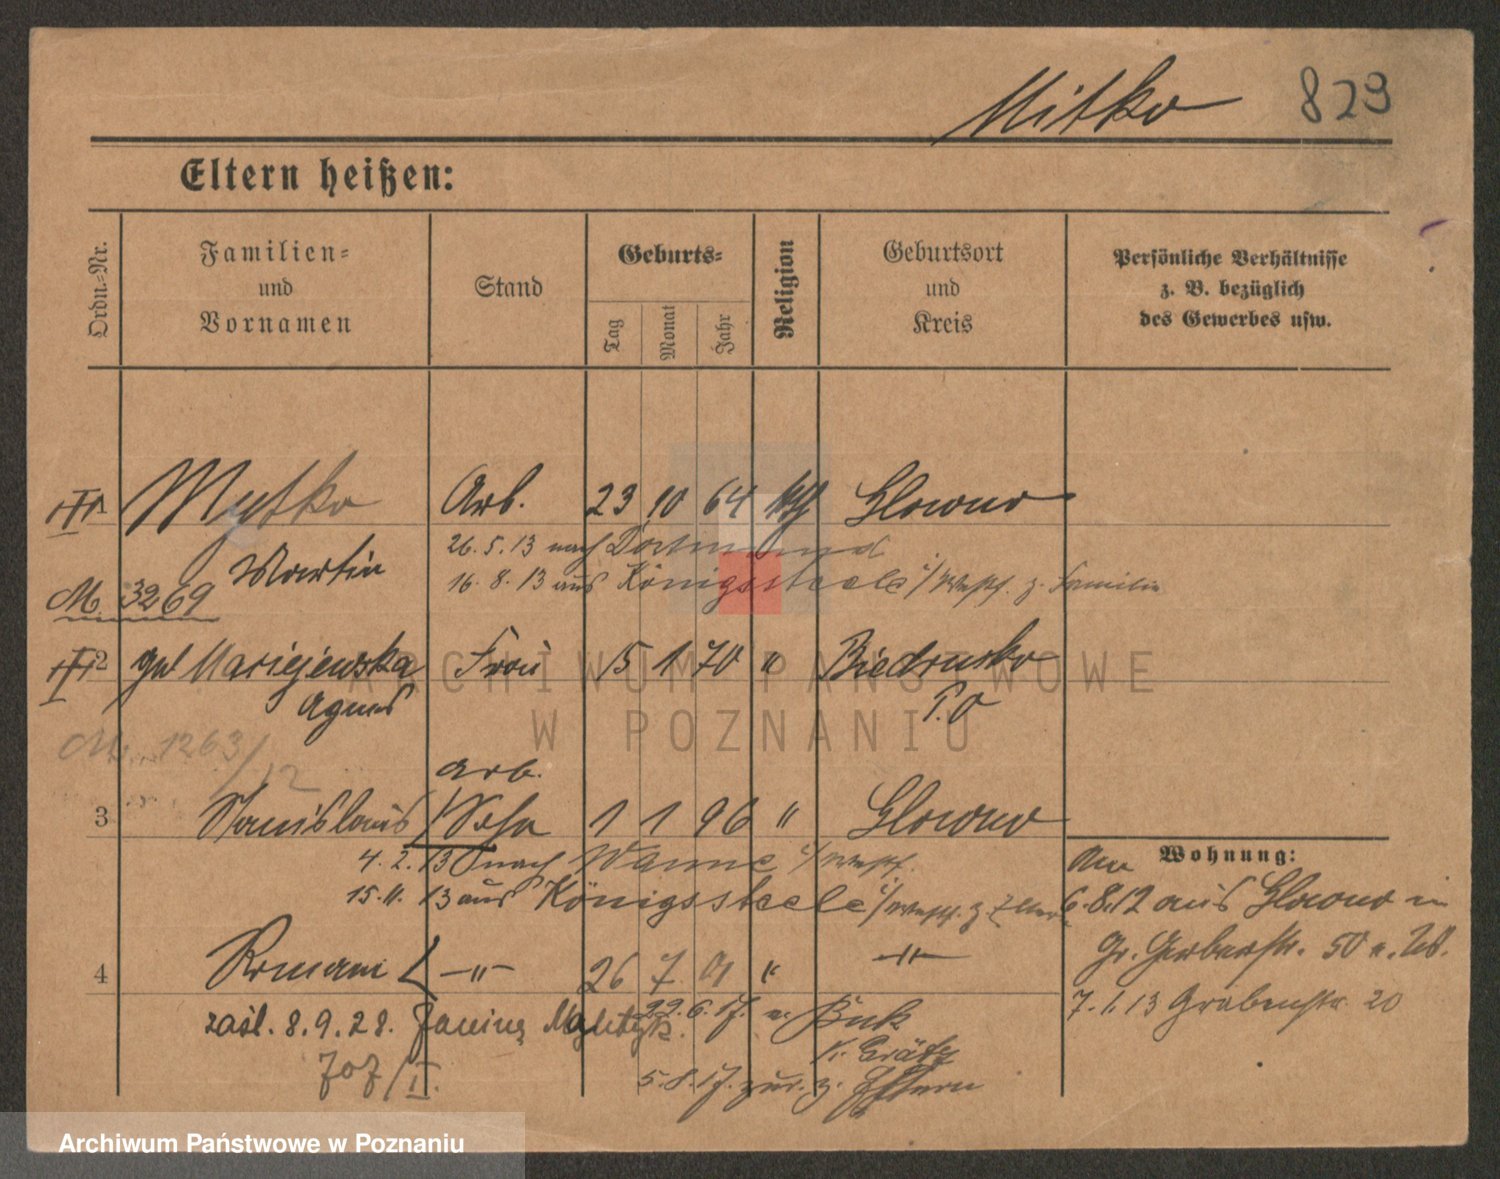 Mitko 829
Eltern heißen:
Ordn.-Nr.
Familien-
und
Vornamen
Stand
Geburts-
Tag
Monat
Jahr
Religion
Geburtsort
und
Kreis
Persönliche Verhältnisse
z. B. bezüglich
des Gewerbes usw.
1 Mytko Arb. 23 10 64 kth Glowno
Martin
26. 5. 13 nach Dortmund
16. 8. 13 aus Königssteele i/Westf. z. Familie
M. 3269
2 geb Maciejewska Frau 15 1 70 " Biedrusko
Agnes P. O
1263/12
arb.
3 Stanislaus Sohn 1 1 96 " Glowno
4. 2. 13 nach Wanne i/Westf.
15. 11. 13 aus Königssteele i/Westf. z. Eltern
Wohnung:
6. 8. 12 aus Glowno in
Gr. Gerberstr. 50
7. 1. 13 Grabenstr. 20
4 Roman -"- 26 7 01 " -"-
zaśl. 8. 9. 28. Janinę
22. 6. 17. n. Buk
K. Grätz
5. 8. 17. zur. z. Eltern
707/II.
ARCHIWUM PAŃSTWOWE
W POZNANIU
Archiwum Państwowe w Poznaniu